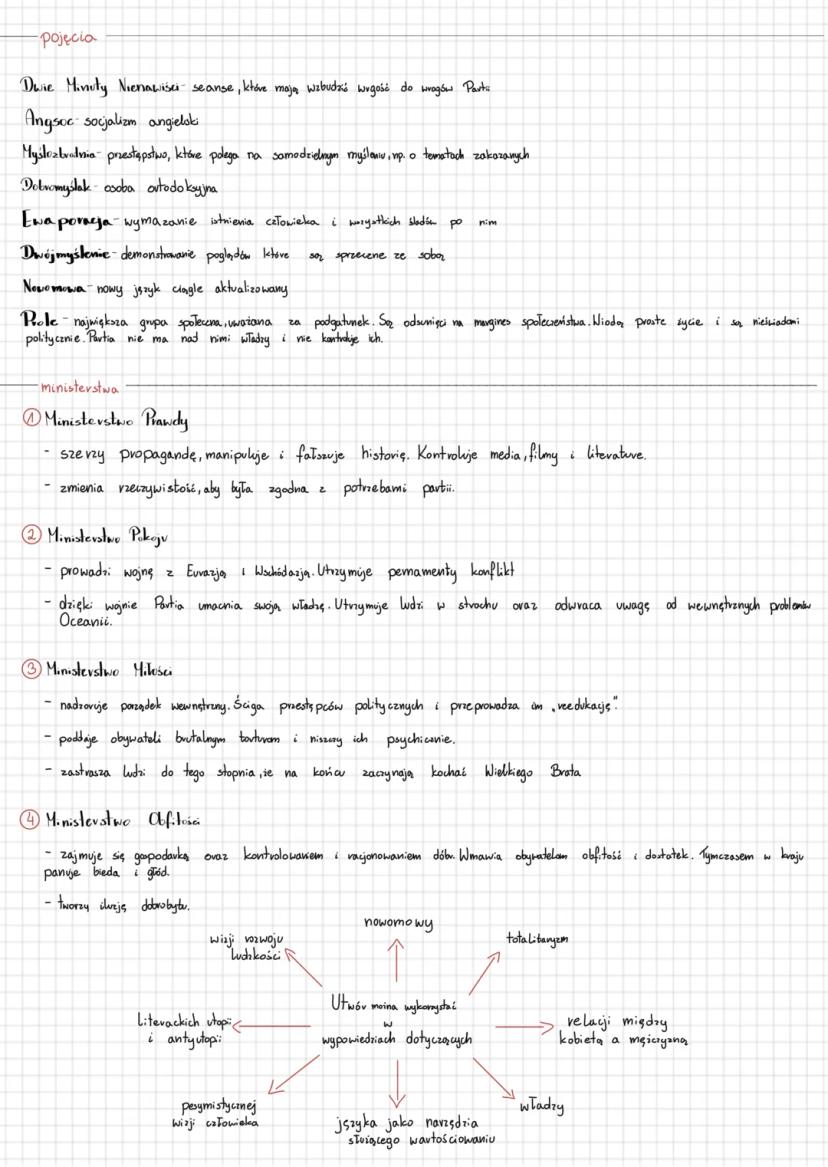 pojęcia
Dwie Minuty Nienawiści - seanse, które mają wzbudzić wrogość do wrogów Partii
Angsoc - socjalizm angielski
Myślozbrodnia - przestępstwo, które polega na samodzielnym myśleniu, np. o tematach zakazanych
Dobromyślak - osoba ortodoksyjna
Ewaporacja - wymazanie istnienia człowieka i wszystkich śladów po nim
Dwójmyślenie - demonstrowanie poglądów które są sprzeczne ze sobą
Nowomowa - nowy język ciągle aktualizowany
Prole - największa grupa społeczna, uważana za podgatunek. Są odsunięci na margines społeczeństwa. Wiodą proste życie i są nieświadomi
politycznie. Partia nie ma nad nimi władzy i nie kontroluje ich.
ministerstwa
1 Ministerstwo Prawdy
- szerzy propagandę, manipuluje i fałszuje historię. Kontroluje media, filmy i literaturę.
- zmienia rzeczywistość, aby była zgodna z potrzebami partii.
2 Ministerstwo Pokoju
- prowadzi wojnę z Eurazją i Wschódazją. Utrzymuje pernamenty konflikt
- dzięki wojnie Partia umacnia swoją władzę. Utrzymuje ludzi w strachu oraz odwraca uwagę od wewnętrznych problemów
Oceanii.
3 Ministerstwo Miłości
- nadzoruje porządek wewnętrzny. Ściga przestępców politycznych i przeprowadza im „reedukację".
- poddaje obywateli brutalnym torturom i niszczy ich psychicznie.
- zastrasza ludzi do tego stopnia, że na końcu zaczynają kochać Wielkiego Brata
4 Ministerstwo Obfitości
- zajmuje się gospodarką oraz kontrolowaniem i racjonowaniem dóbr. Wmawia obywatelom obfitość i dostatek. Tymczasem w kraju
panuje bieda i głód.
- tworzy iluzję dobrobytu.
nowomowy
wizji rozwoju
ludzkości
totalitaryzm
Utwór można wykorzystać
w
wypowiedziach dotyczących
literackich utopii
i antyutopii
relacji między
kobietą a mężczyzną
pesymistycznej
wizji człowieka
języka jako narzędzia
służącego wartościowaniu
władzy